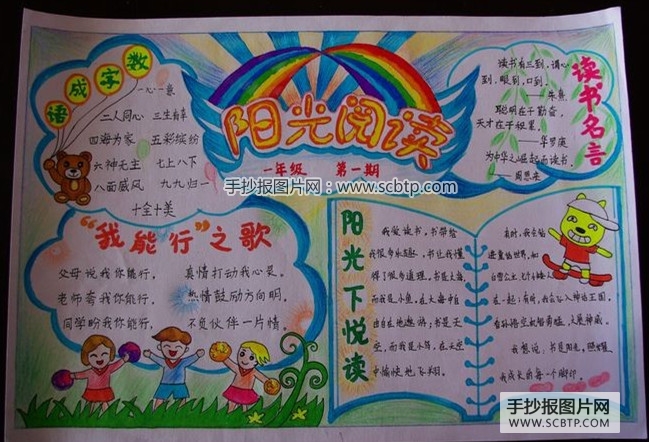 数字成语
一心一意
二人同心 三生有幸
四海为家 五彩缤纷
六神无主 七上八下
八面威风 九九归一
十全十美
阳光阅读
一年级 第一期
手抄报图片网：www.scbtp.com
读书名言
读书有三到，谓心
到，眼到，口到。
——朱熹
聪明在于勤奋，
天才在于积累。
——华罗庚
为中华之崛起而读书。
——周恩来
“我能行”之歌
父母说我你能行， 真情打动我心泉。
老师夸我你能行， 热情鼓励方向明。
同学盼我你能行， 不负伙伴一片情。
阳光下悦读
我爱读书，书带给
我很多乐趣，书让我懂
得了很多道理。书是大海，
而我是小鱼，在大海中自
由自在地遨游；书是天
空，而我是小鸟，在天空
中愉快地飞翔。
有时，我会钻
进童话世界，和
白雪公主、七个小矮人
在一起；有时，我会加入神话王国，
和孙悟空
大展神威。
我想说：书是阳光，照耀
我成长的每一个脚印。
手抄报图片网
WWW.SCBTP.COM